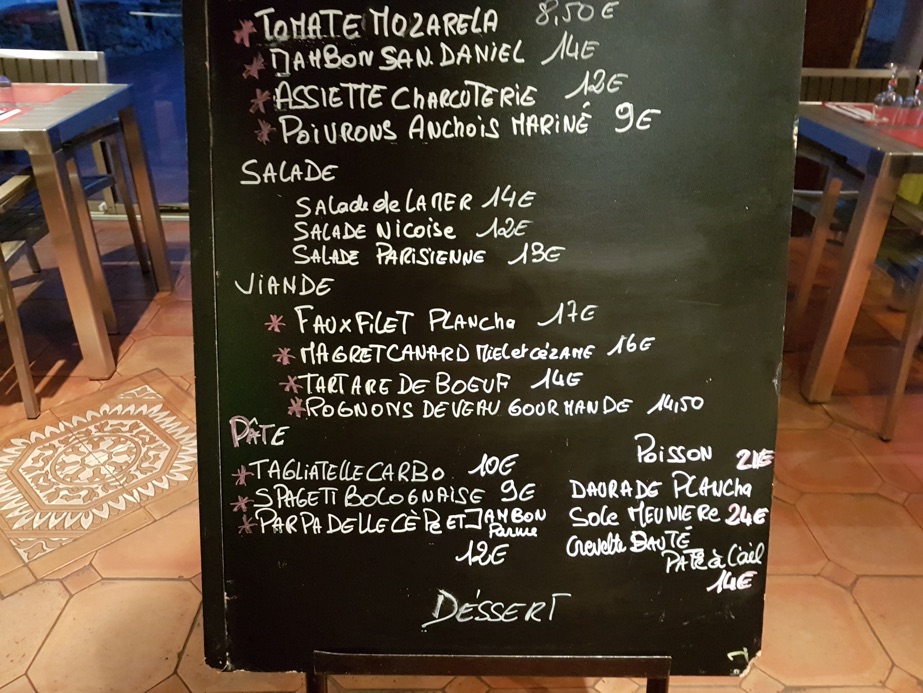 * TOMATE MOZARELA 8,50 €
* JAMBON SAN DANIEL 14€
* ASSIETTE CHARCUTERIE 12€
* POIVRONS ANCHOIS MARINÉ 9€
SALADE
SALADE de LA MER 14€
SALADE NICOISE 12€
SALADE PARISIENNE 13€
VIANDE
* FAUX FILET PLANCHA 17€
* MAGRET CANARD MIEL et CÉZAME 16€
* TARTARE DE BOEUF 14€
* ROGNONS DE VEAU GOURMANDE 14,50
PÂTE
* TAGLIATELLE CARBO 10€
* SPAGETI BOLOGNAISE 9€
* PARPADELLE CÈPE ET JAMBON
Parme
12€
POISSON 21€
DAURADE PLANCHA
SOLE MEUNIERE 24€
Crevette SAUTÉ
PATE à L'ail
14€
DÉSSERT